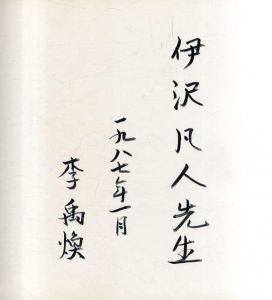 伊沢凡人先生
一九八七年一月
李禹煥